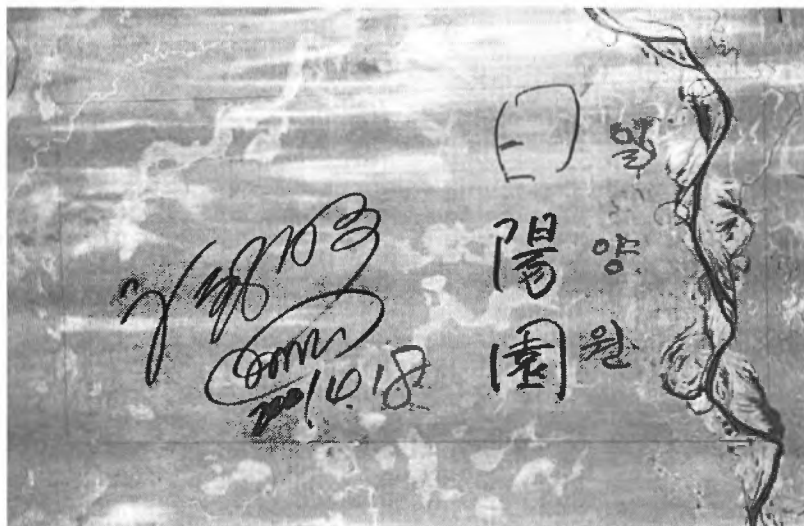 일양원
日陽園
2001.10.18